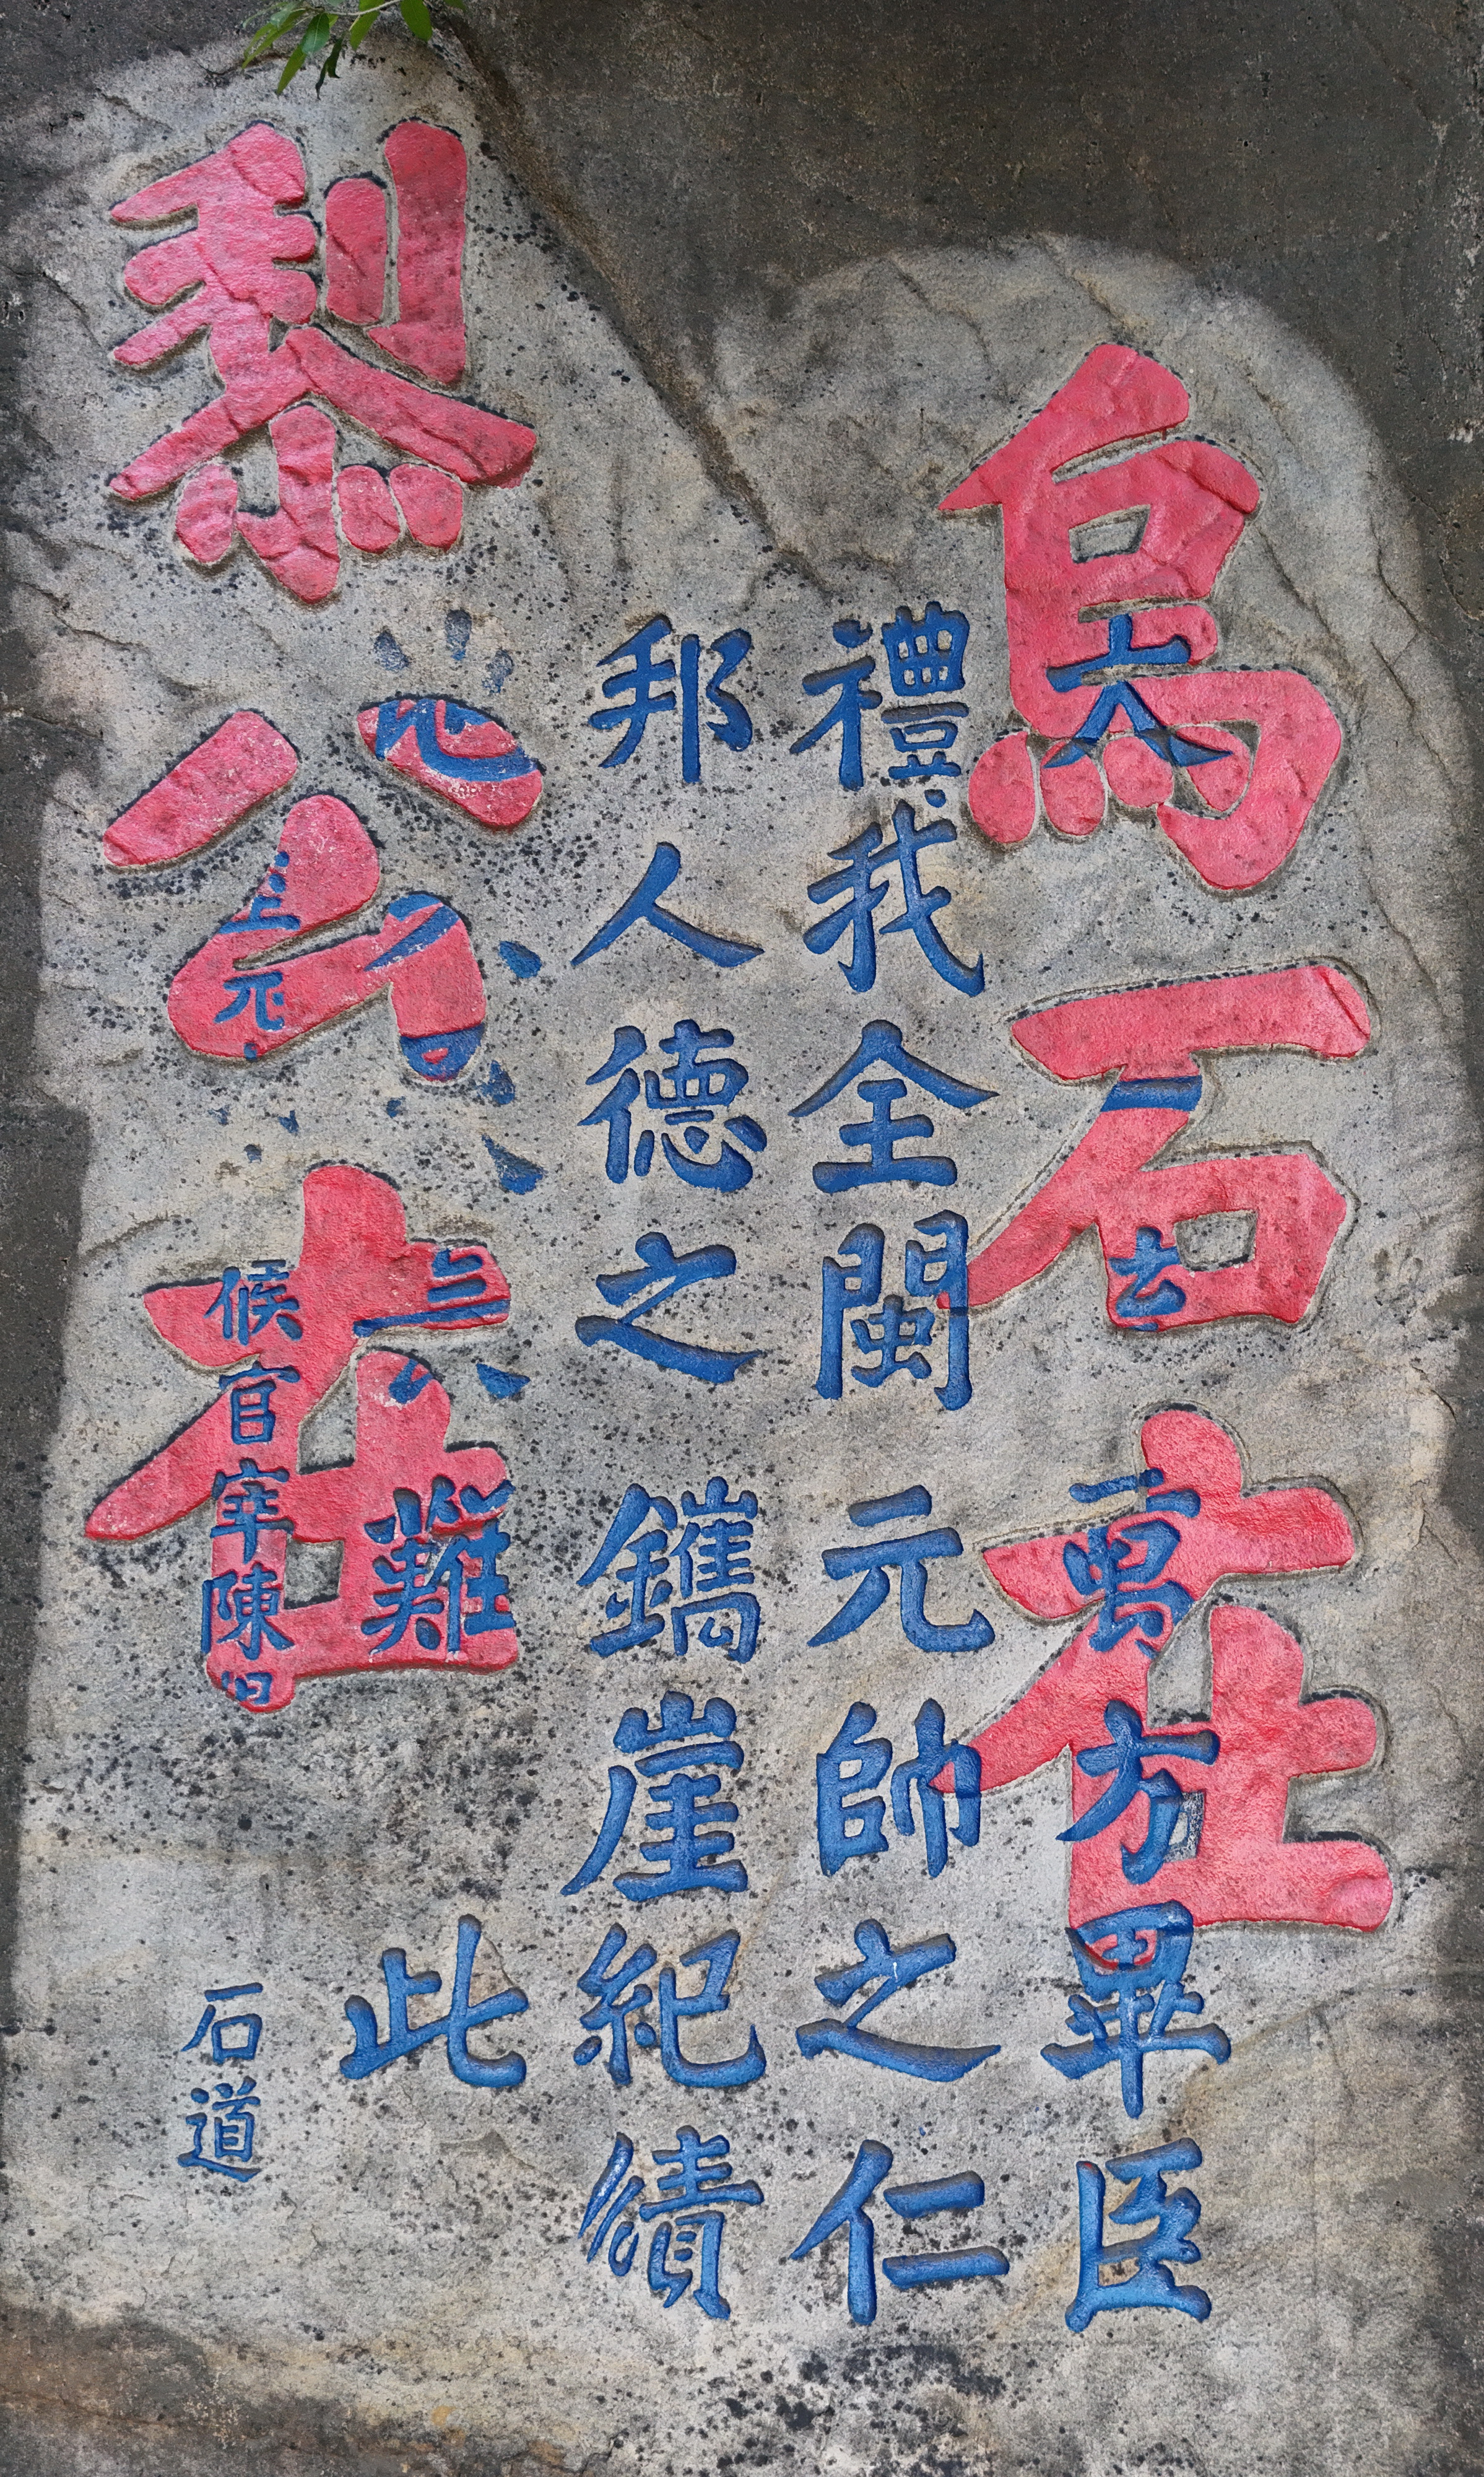 烏石在
黎公在
大
萬方畢臣
禮我全閩元帥之仁
邦人德之鐫崖紀績
難此
候官宰陳
石道